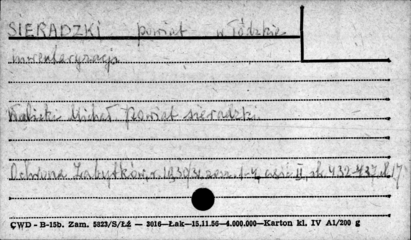 SIERADZKI powiat w łódzkie
inwentaryzacja
Walicki Michał Powiat sieradzki.
Ochrona Zabytków, r. 1930/31, zesz. 1-4, część II, str. 432-437, il. 17
ÇWD - B-15b. Zam. 5823/S/Łź — 3016—Łak—15.11.56—4.000.000—Karton kl. IV A1/200 g